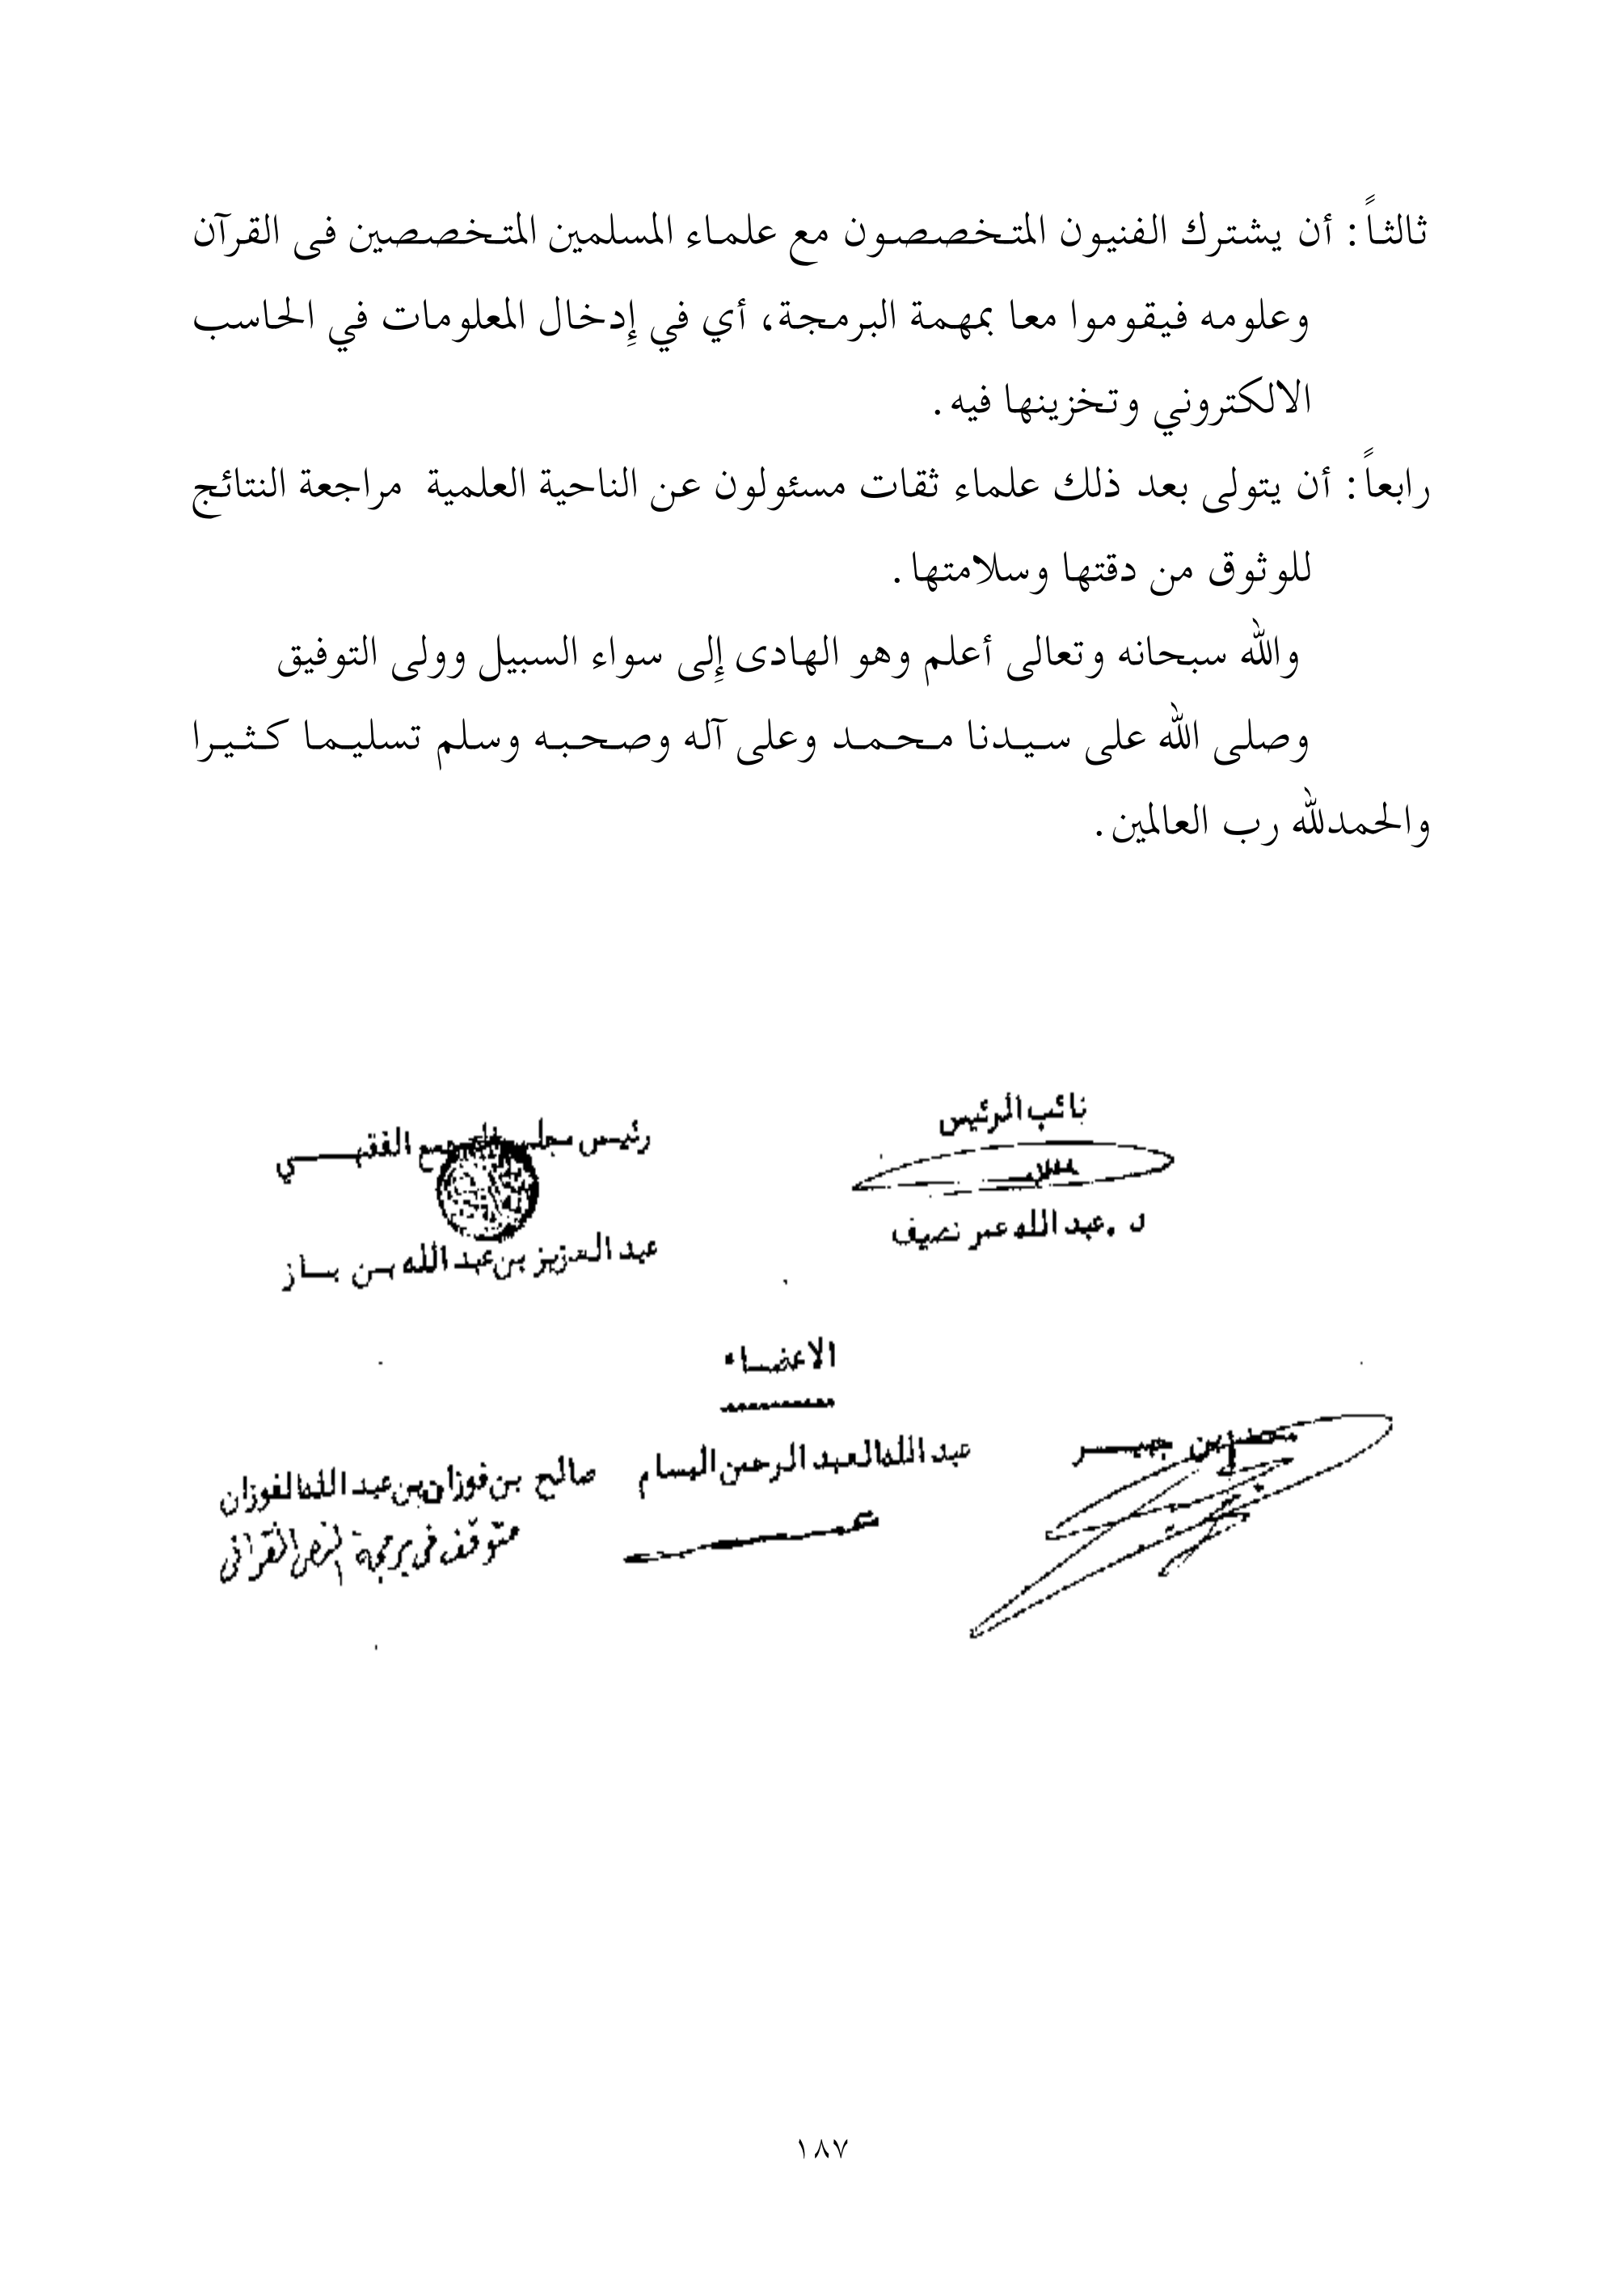 ثالثاً: أن يشترك الفنيون المتخصصون مع علماء المسلمين المتخصصين فى القرآن
وعلومه فيقوموا معا بمهمة البرمجة، أي في إدخال المعلومات في الحاسب
الالكتروني وتخزينها فيه.
رابعاً: أن يتولى بعد ذلك علماء ثقات مسئولون عن الناحية العلمية مراجعة النتائج
للوثوق من دقتها وسلامتها.
والله سبحانه وتعالى أعلم وهو الهادى إلى سواء السبيل وولى التوفيق
وصلى الله على سيدنا محمد وعلى آله وصحبه وسلم تسليما كثيرا
والحمدلله رب العالمين.
نائب الرئيس
رئيس مجلس المجمع الفقهي
د. عبد الله عمر نصيف
عبد العزيز بن عبد الله بن باز
الاعضاء
محمد بن جبير
عبد الله العبد الرحمن البسام
صالح بن فوزان بن عبد الله الفوزان
متوقف في برمجة النص القرآني
١٨٧